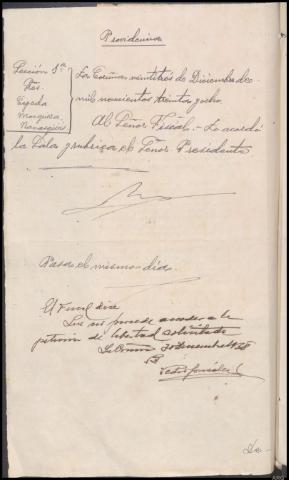 Providencia
Sección 1ª
Srs.
Cepeda
Marquina
La Coruña veintitrés de Diciembre de
mil novecientos treinta y ocho.
Al Señor Fiscal.- Lo acordó
la Sala y rubrica el Señor Presidente
Pasa el mismo dia.
El Fiscal dice
Que no procede acceder a la
petición de libertad solicitada
La Coruña 30 Diciembre 1938
De-